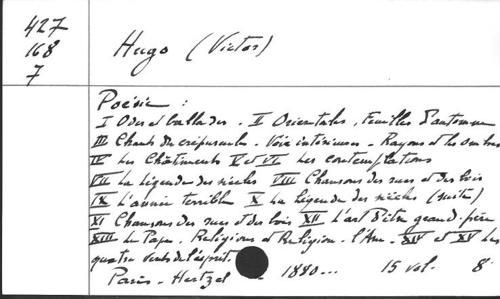 427
168
7
Hugo (Victor)
Poésie :
I Odes et ballades. II Orientales, Feuilles d'automne
III Chants du crépuscule. Voix intérieures. Rayons et les ombres
IV Les Châtiments V et VI Les contemplations
VII La légende des siècles VIII Chansons des rues et des bois
IX L'année terrible X La légende des siècles (suite)
XI Chansons des rues et des bois XII L'art d'être grand-père
XIII Le Pape. Religions et Religion. l'Ane. XIV et XV Les
quatre vents de l'esprit.
Paris. Hetzel 1880... 15 vol. 8°